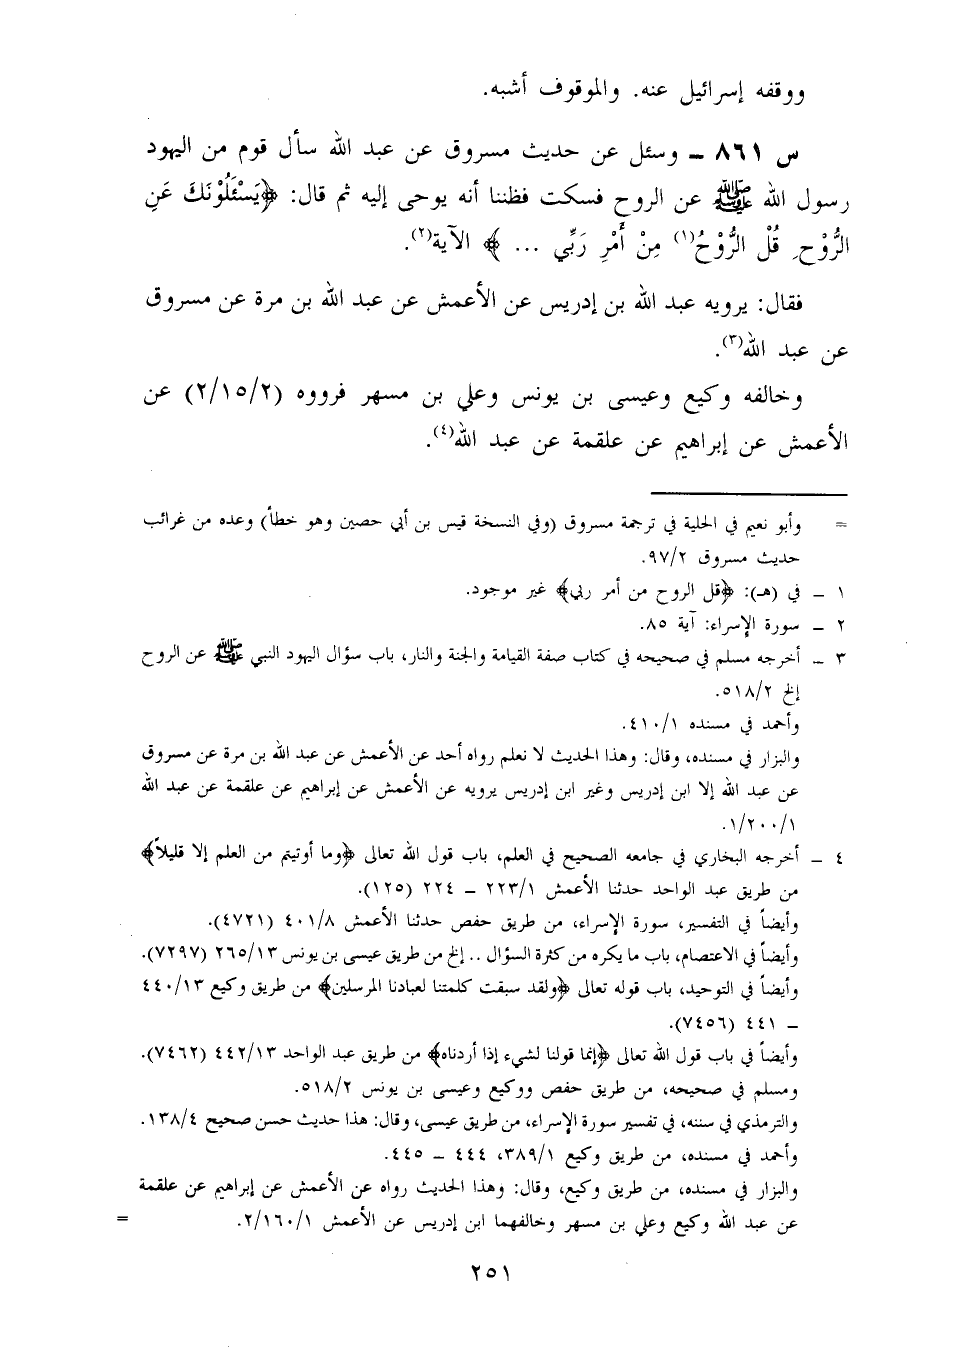 ووقفه إسرائيل عنه. والموقوف أشبه.
س ٨٦١ ــ وسئل عن حديث مسروق عن عبد الله سأل قوم من اليهود
رسول الله ﷺ عن الروح فسكت فظننا أنه يوحى إليه ثم قال: ﴿يَسْئَلُوْنَكَ عَنِ
الرُّوْحِ قُلْ الرُّوْحُ(١) مِنْ أَمْرِ رَبِّي ... ﴾ الآية(٢).
فقال: يرويه عبد الله بن إدريس عن الأعمش عن عبد الله بن مرة عن مسروق
عن عبد الله(٣).
وخالفه وكيع وعيسى بن يونس وعلي بن مسهر فرووه (٢/١٥/٢) عن
الأعمش عن إبراهيم عن علقمة عن عبد الله(٤).
= وأبو نعيم في الحلية في ترجمة مسروق (وفي النسخة قيس بن أبي حصين وهو خطأ) وعده من غرائب
حديث مسروق ٩٧/٢.
١ ــ في (هـ): ﴿قل الروح من أمر ربي﴾ غير موجود.
٢ ــ سورة الإسراء: آية ٨٥.
٣ ــ أخرجه مسلم في صحيحه في كتاب صفة القيامة والجنة والنار، باب سؤال اليهود النبي ﷺ عن الروح
إلخ ٥١٨/٢.
وأحمد في مسنده ٤١٠/١.
والبزار في مسنده، وقال: وهذا الحديث لا نعلم رواه أحد عن الأعمش عن عبد الله بن مرة عن مسروق
عن عبد الله إلا ابن إدريس وغير ابن إدريس يرويه عن الأعمش عن إبراهيم عن علقمة عن عبد الله
١/٢٠٠/١.
٤ ــ أخرجه البخاري في جامعه الصحيح في العلم، باب قول الله تعالى ﴿وما أوتيتم من العلم إلا قليلاً﴾
من طريق عبد الواحد حدثنا الأعمش ٢٢٣/١ ــ ٢٢٤ (١٢٥).
وأيضاً في التفسير، سورة الإسراء، من طريق حفص حدثنا الأعمش ٤٠١/٨ (٤٧٢١).
وأيضاً في الاعتصام، باب ما يكره من كثرة السؤال .. إلخ من طريق عيسى بن يونس ٢٦٥/١٣ (٧٢٩٧).
وأيضاً في التوحيد، باب قوله تعالى ﴿ولقد سبقت كلمتنا لعبادنا المرسلين﴾ من طريق وكيع ٤٤٠/١٣
ــ ٤٤١ (٧٤٥٦).
وأيضاً في باب قول الله تعالى ﴿إنما قولنا لشيء إذا أردناه﴾ من طريق عبد الواحد ٤٤٢/١٣ (٧٤٦٢).
ومسلم في صحيحه، من طريق حفص ووكيع وعيسى بن يونس ٥١٨/٢.
والترمذي في سننه، في تفسير سورة الإسراء، من طريق عيسى، وقال: هذا حديث حسن صحيح ١٣٨/٤.
وأحمد في مسنده، من طريق وكيع ٣٨٩/١، ٤٤٤ ــ ٤٤٥.
والبزار في مسنده، من طريق وكيع، وقال: وهذا الحديث رواه عن الأعمش عن إبراهيم عن علقمة
عن عبد الله وكيع وعلي بن مسهر وخالفهما ابن إدريس عن الأعمش ٢/١٦٠/١. =
٢٥١